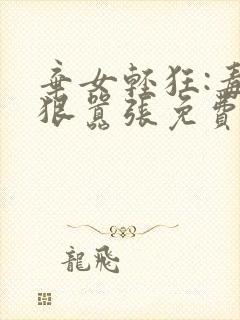 棄女輕狂:毒
狠囂張免費
龍飛